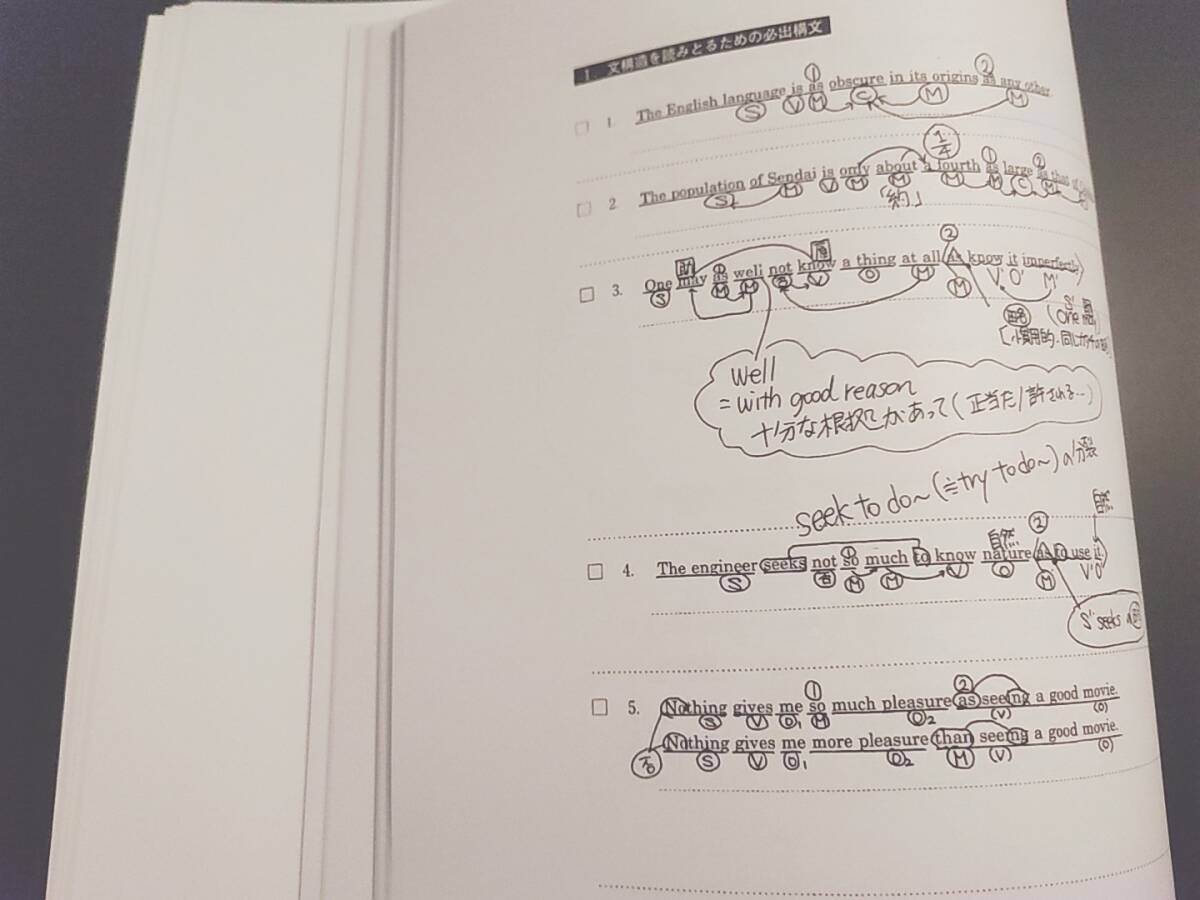 1. 文構造を読みとるための必出構文
① ②
1. The English language is as obscure in its origins as any other
S V M C M M
1/4 ① ②
2. The population of Sendai is only about a fourth as large as that of
S M V M M M M C M
「約」
助 ① 原 ②
3. One may as well not know a thing at all as know it imperfectly
S M M 否 V O M M V' O' M'
略 (One
well
= with good reason
十分な根拠があって(正当だ/許される…)
seek to do~(≒try to do~)の分裂
① 自然… ② 自然…
4. The engineer seeks not so much to know nature as to use it
S 否 M M V O M V' O'
S' seeks の
① ②
5. Nothing gives me so much pleasure as seeing a good movie.
S V O₁ M O₂ (V) (O)
Nothing gives me more pleasure than seeing a good movie.
否 S V O₁ O₂ M (V) (O)